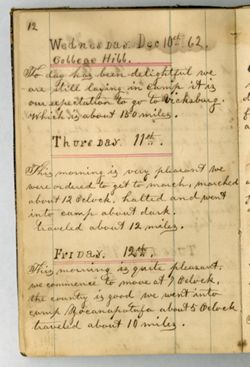 12
Wednesday Dec 10th 62.
College Hill.
To day has been delightful we
are still laying in camp it is
our expectation to go to Vicksburg.
Which is about 150 miles.
Thursday 11th.
This morning is very pleasant we
were ordered to get to march, marched
about 12 Oclock, halted and went
into camp about dark.
traveled about 12 miles.
Friday. 12th.
This morning is quite pleasant,
we commence to move at 7 Oclock,
the county is good we went into
camp Yocanapatafa about 5 Oclock
traveled about 10 miles.